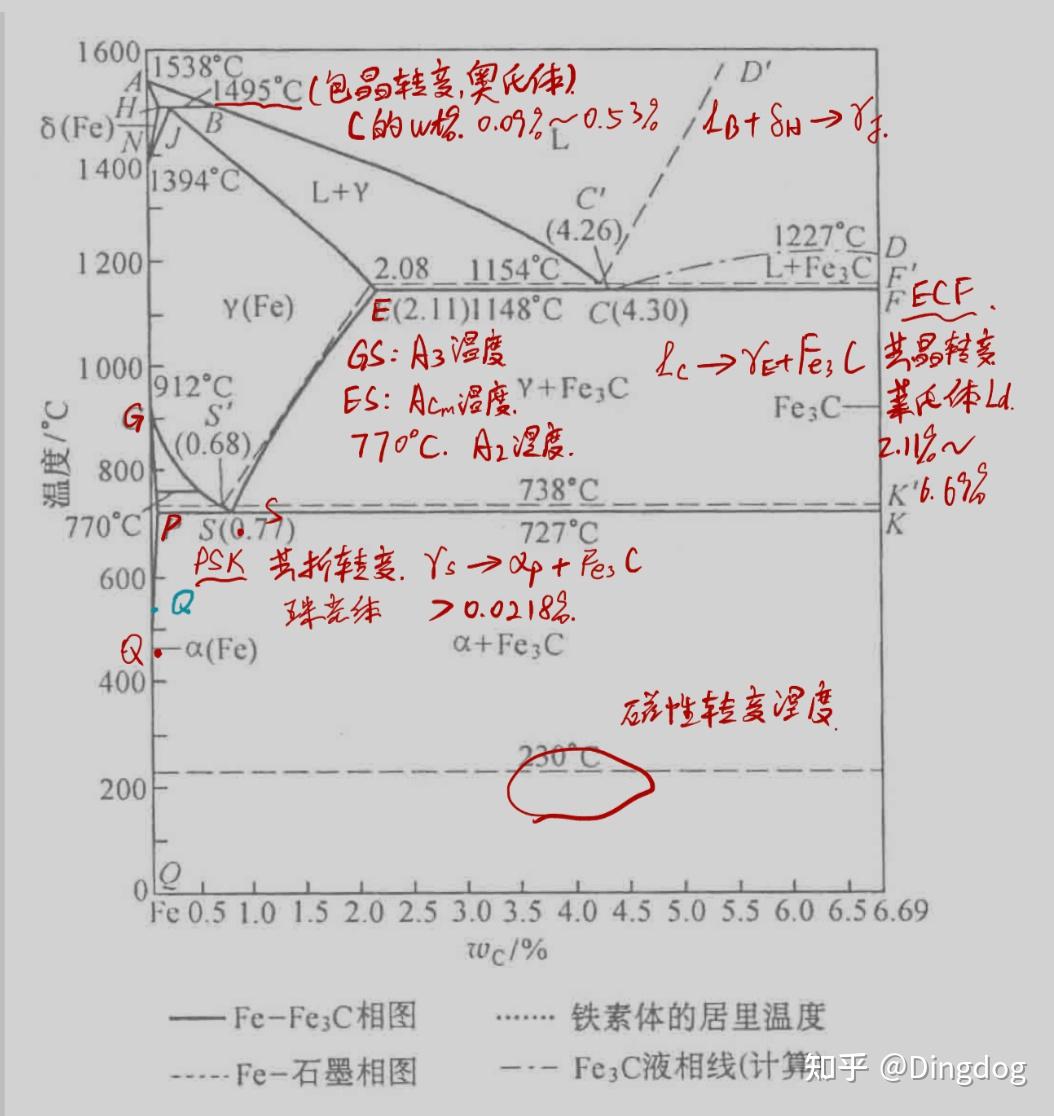 1600
A
1538°C
1495°C
(包晶转变,奥氏体)
D'
H
δ(Fe)
N
J
B
C的w格. 0.09%~0.53%
L
L_B + δ_H → γ_J.
1400
1394°C
L+γ
C'
(4.26)
1227°C
D
1200
2.08
1154°C
L+Fe₃C
F'
γ(Fe)
E(2.11)1148°C
C(4.30)
F
ECF.
GS: A₃温度
L_C → γ_E + Fe₃C
共晶转变
1000
912°C
ES: Acm温度.
γ+Fe₃C
Fe₃C
莱氏体Ld.
G
S'
(0.68)
770°C. A₂温度.
2.11%~
6.69%
温度/°C
800
738°C
K'
770°C
P
S(0.77)
S
727°C
K
600
PSK 共析转变. γ_S → α_P + Fe₃C
Q
珠光体 >0.0218%.
Q
α(Fe)
α+Fe₃C
400
磁性转变温度.
230°C
200
Q
0
Fe 0.5 1.0 1.5 2.0 2.5 3.0 3.5 4.0 4.5 5.0 5.5 6.0 6.5 6.69
w_C/%
Fe-Fe₃C相图
铁素体的居里温度
Fe-石墨相图
Fe₃C液相线(计算)
知乎 @Dingdog